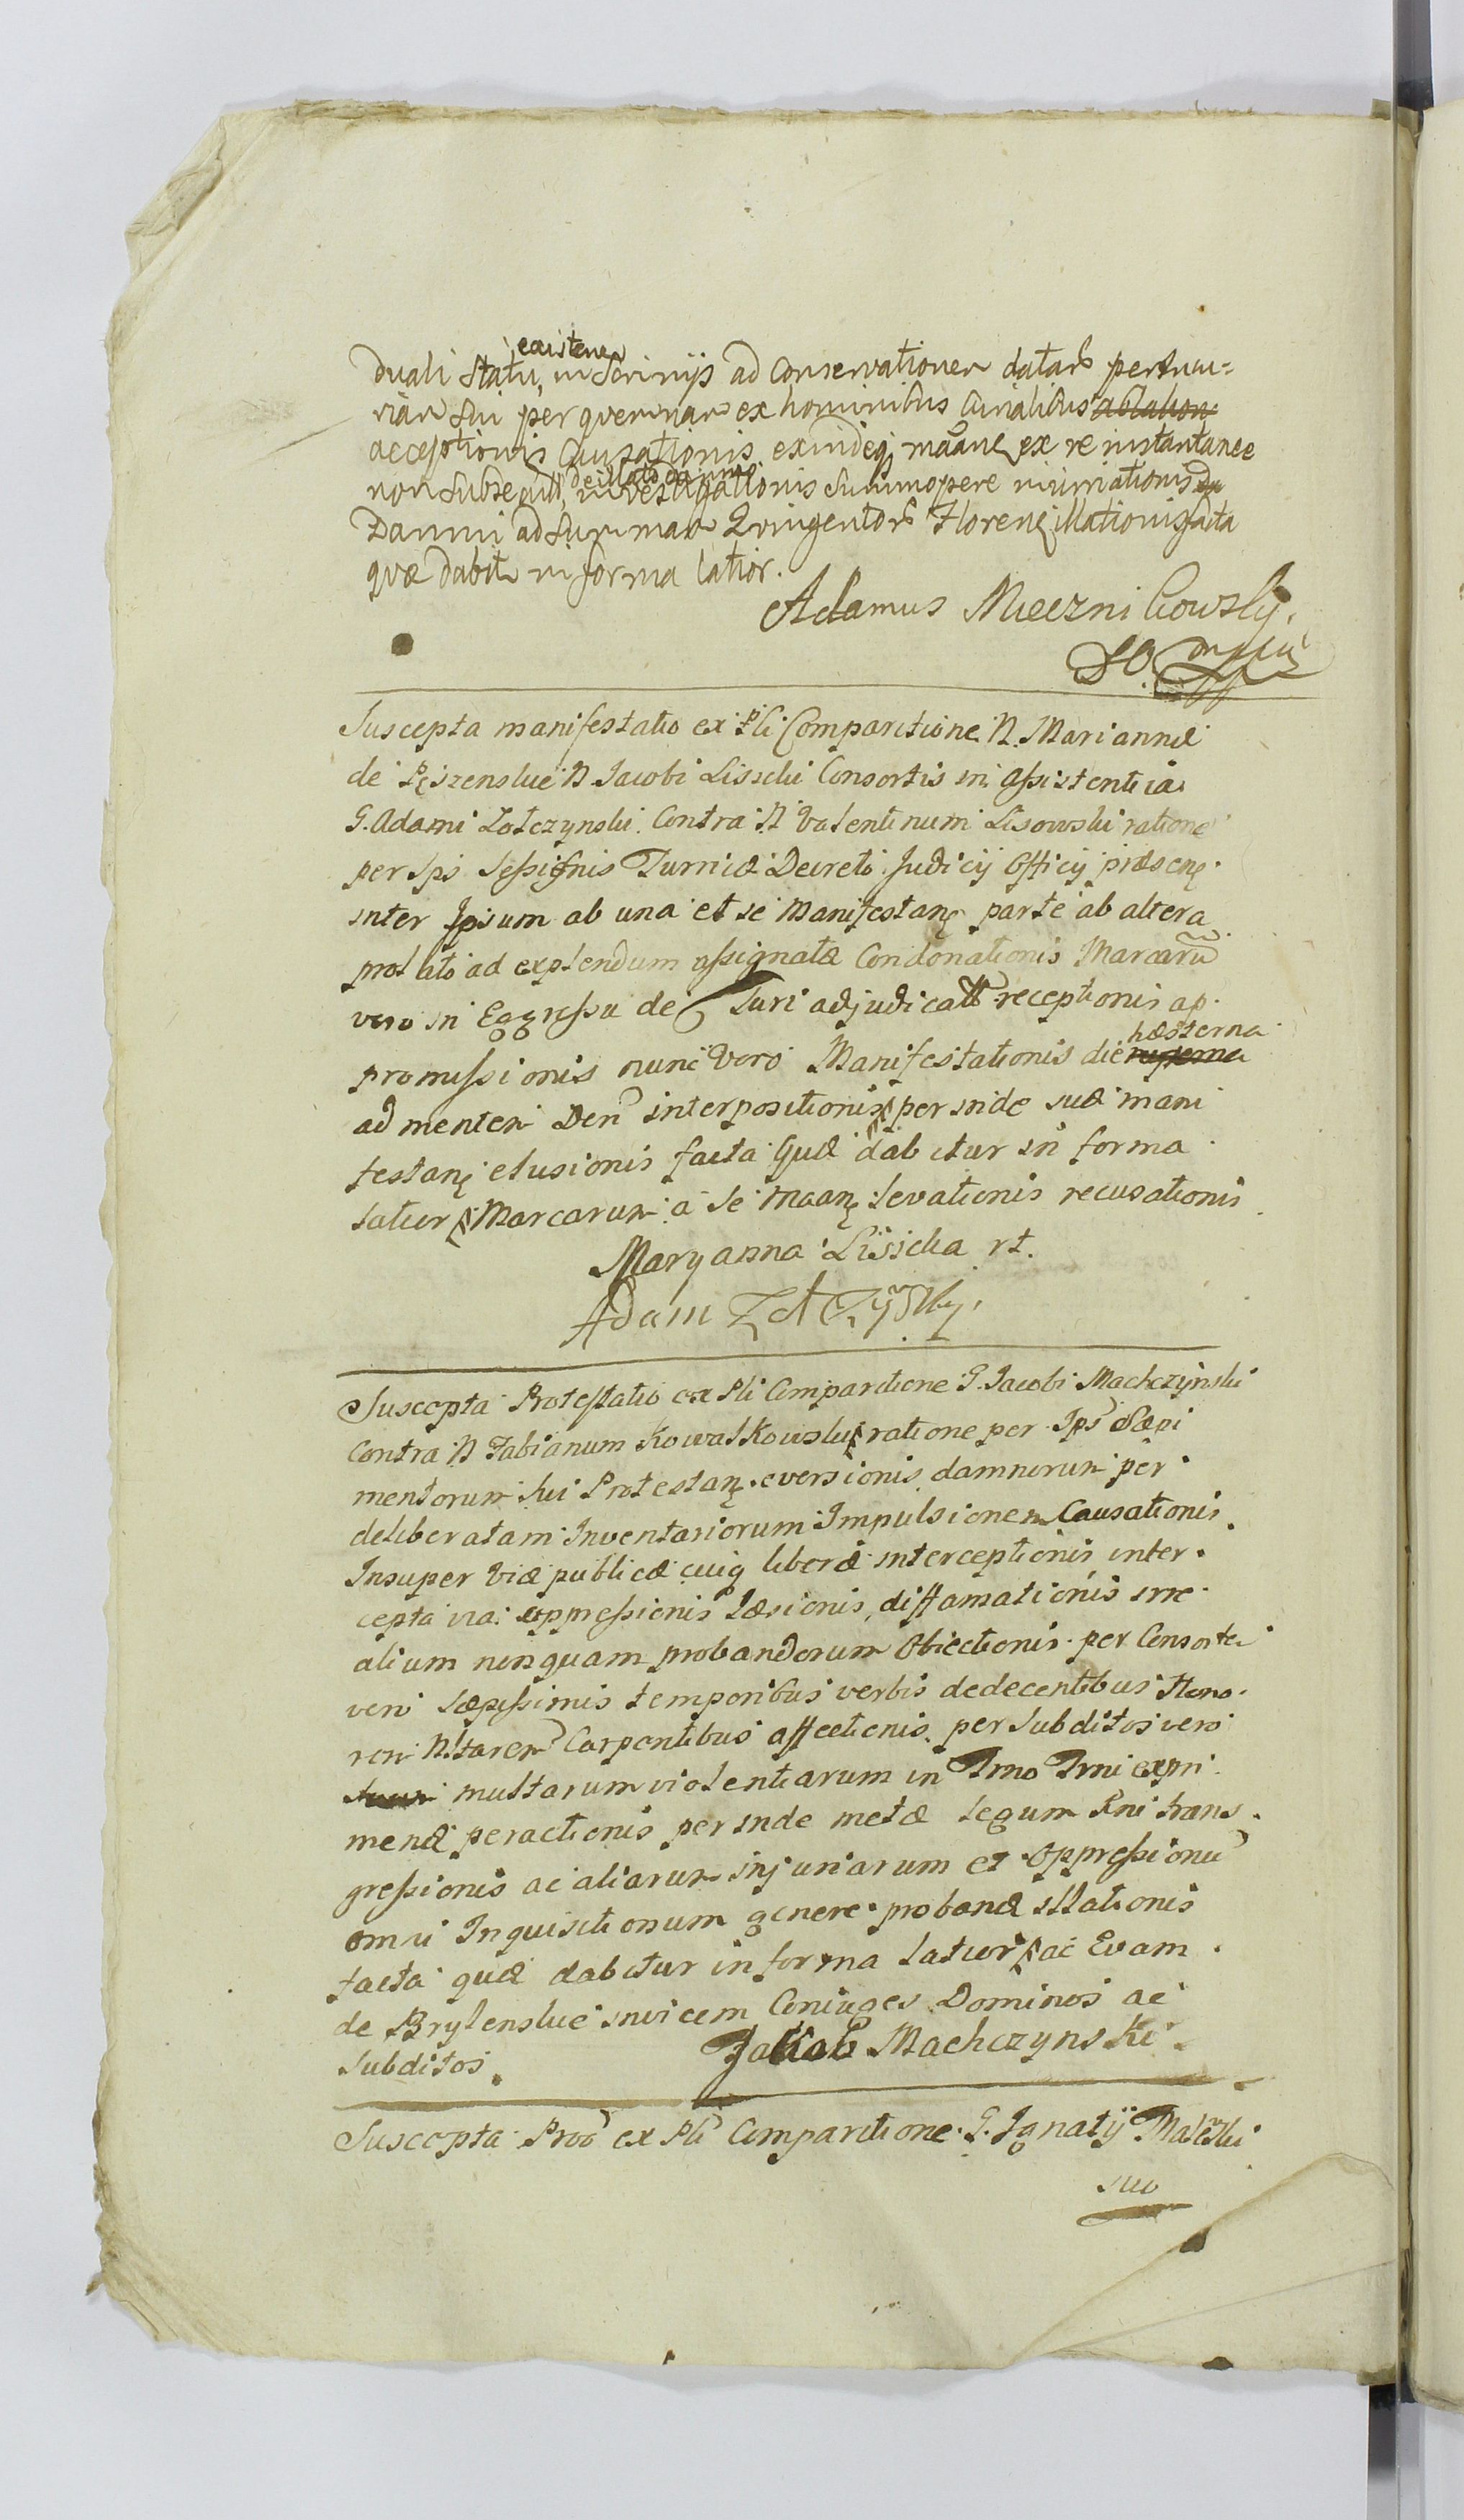 existen
duali Statu, in Scrinijs ad Conservationem datar pecuni=
riar sui per quemnam ex hominibus Curialibus ablation
acceptionis Causationis exindeq maane ex re instantanee
de illato damno
non subsequit, investigationis summopere
Damni ad summam Quingentor Floren illationis facta
quæ dabit in forma latior.
Adamus Miecznikowsky.
Suscepta manifestatio ex Pli Comparitione N. Mariannæ
de N. Jacobi Lissicki Consortis in assistentia
G. Adami Zołczynski Contra N Valentinum Lisowski ratione
per Ips Decreti Judicij Officij præsen
inter Ipsum ab una et se Manifestan parte ab altera
prolato ad explendum assignatæ Condonationis Marcaru
vero in Eggressu de Turi adjudicatt receptionis ap.
hæsterna
promissionis nunc vero Manifestationis die
ad mentem Den interpositionis perinde suæ mani
festan elusionis facta quæ dabitur in forma
latior Marcarum a se maan levationis recusationis
Maryanna Lissicka rt.
Adam
Suscepta Protestatio ex Pli Comparitione G. Jacobi Machczynski
Contra N Fabianum Kowalkowski ratione per Ips Sæpi
mentorum sui Protestan eversionis damnorum per
deliberatam Inventariorum Impulsionem Causationis
Insuper viæ publicæ cuiq liberæ interceptionis inter
cepta via oppressionis læsionis, diffamationis irre
alium nunquam probandorum Obiectionis per Consorte
vero sæpissimis temporibus verbis dedecentibus Hono
rem N.litarem Carpentibus affectionis per subditos vero
multarum violentiarum in Trno Trni expri
menæ peractionis perinde metæ legum Rni trans
gressionis ac aliarum injuriarum et Oppressionu
omni Inquisitionum genere probanæ illationis
facta quæ dabitur in forma latior ac Evam
de Brylenskie invicem Coniuges Dominos ac
subditos.
Jakob Machczynski
Suscepta Proo ex Pli Comparitione G. Ignatij
suo